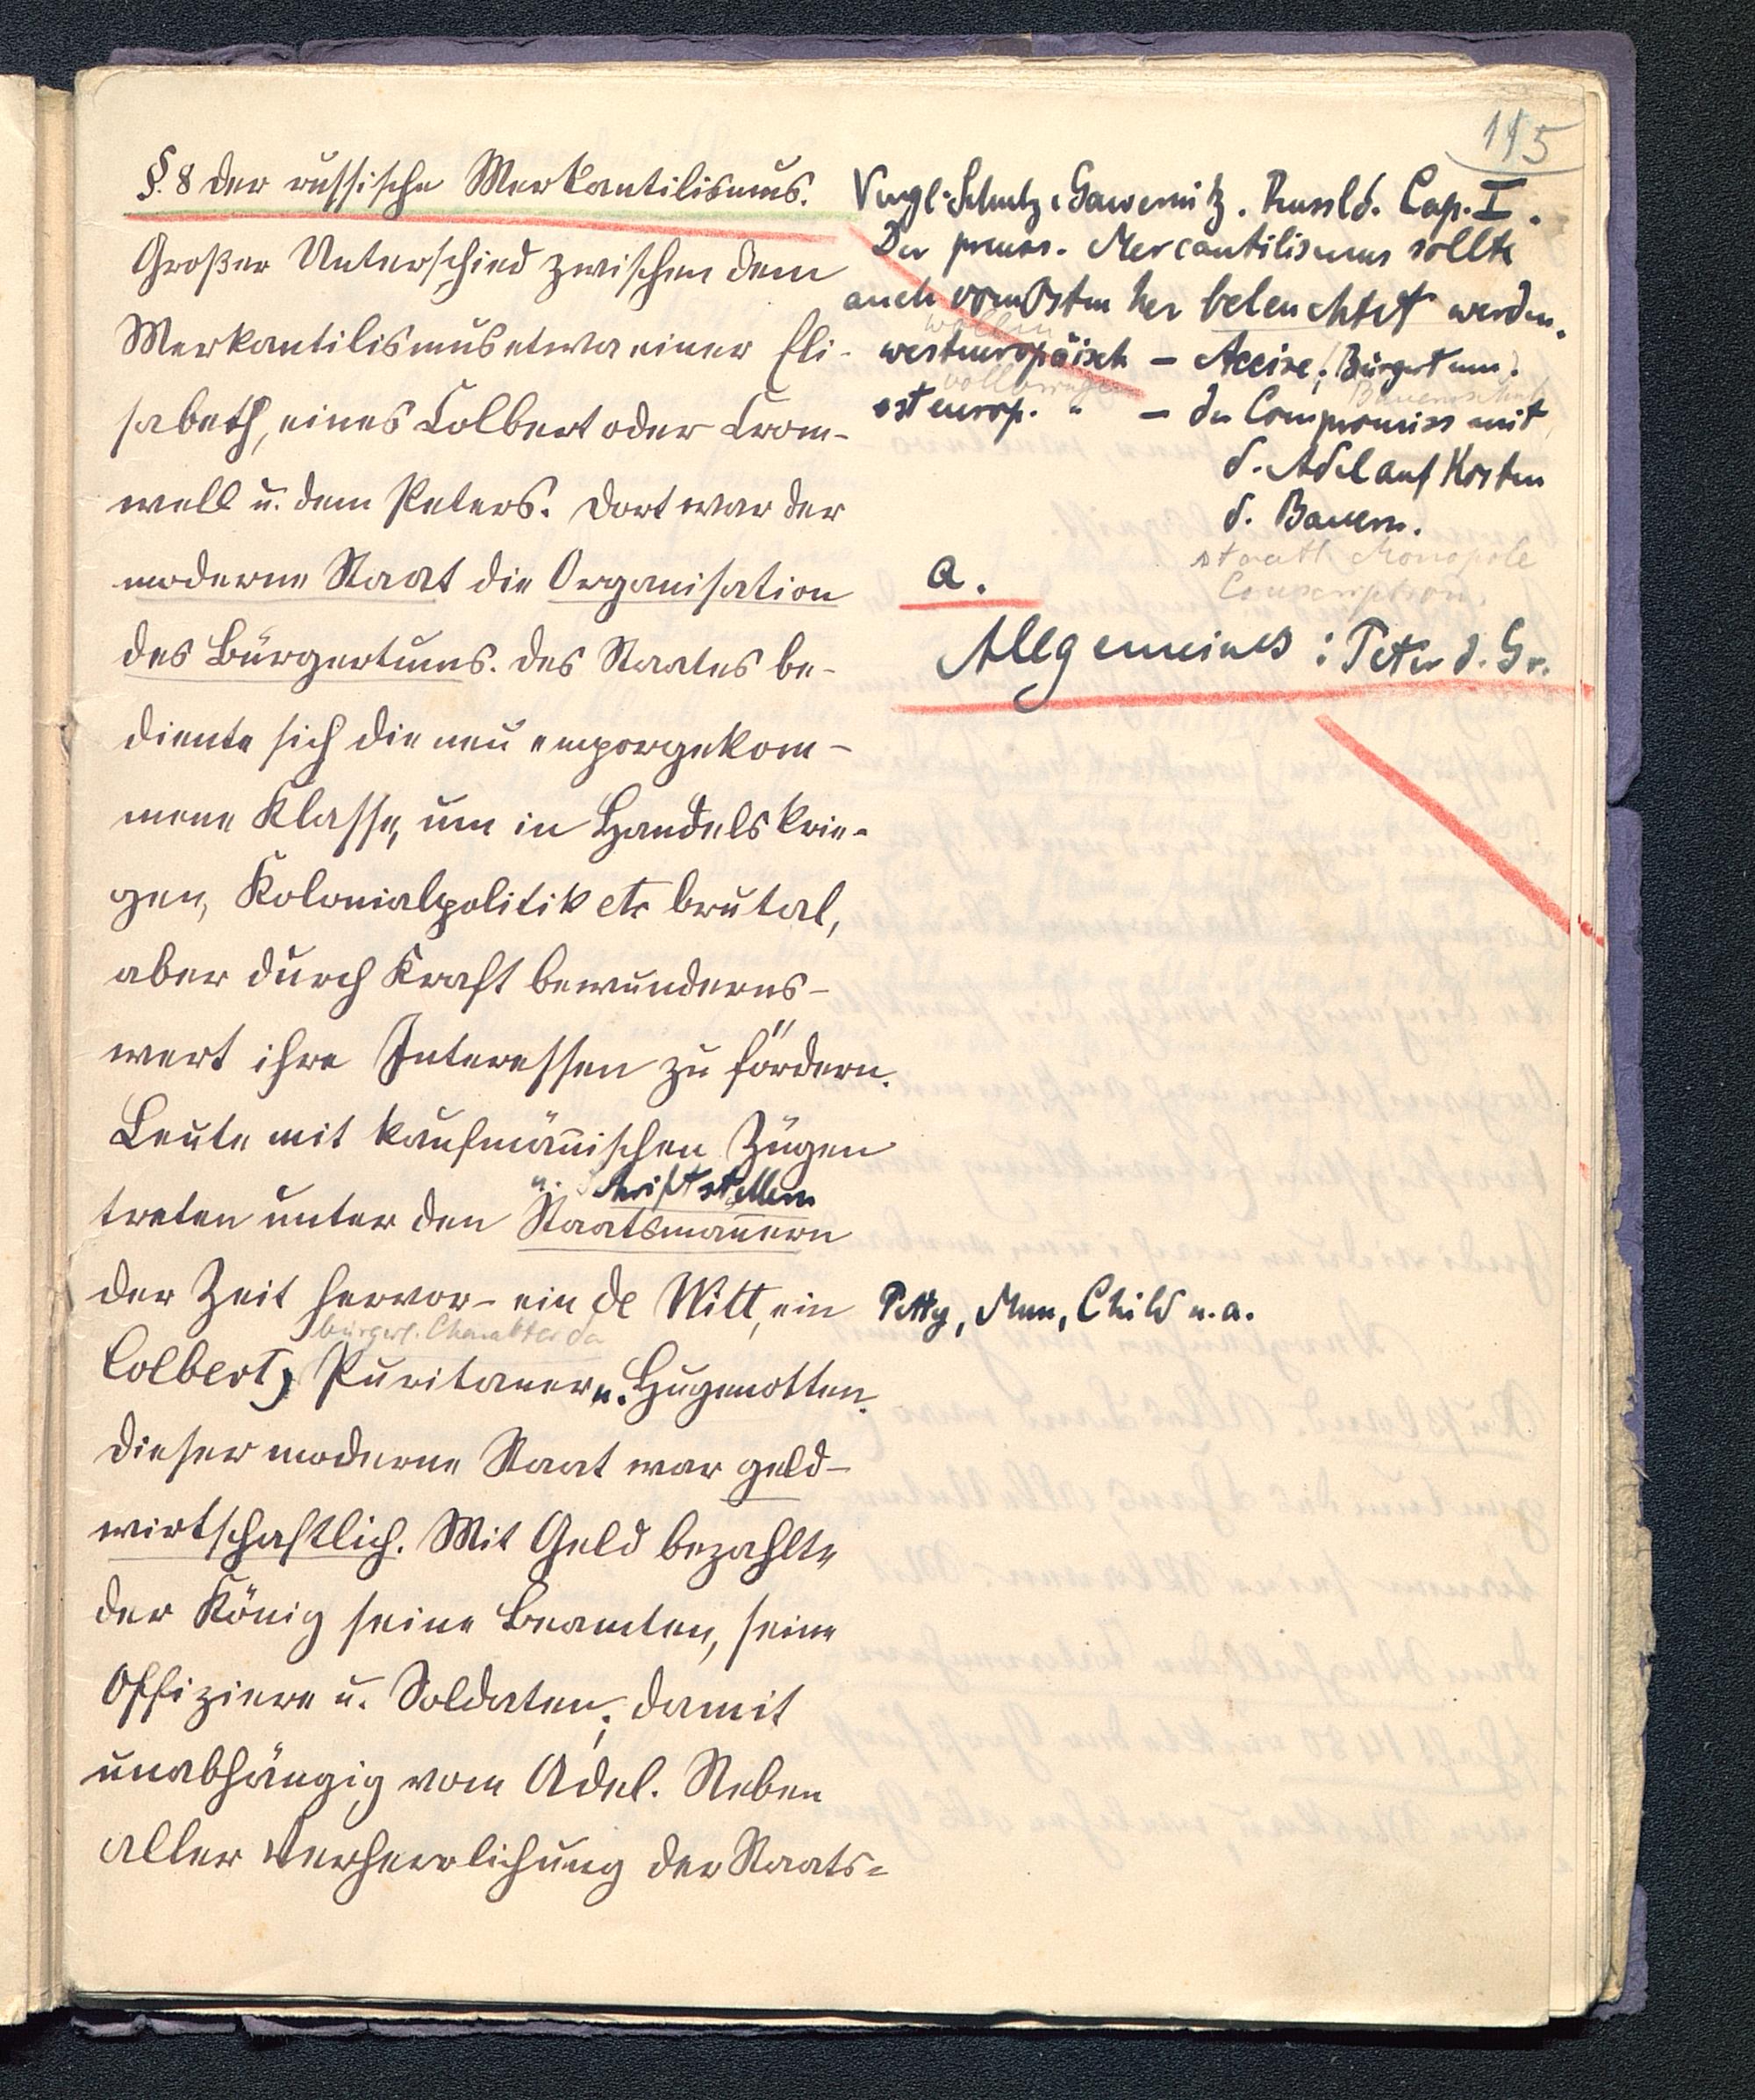 115
§. 8 Der russische Merkantilismus.
Großer Unterschied zwischen dem
Merkantilismus etwa einer Eli-
sabeth, eines Colbert oder Crom-
well u. dem Peters. Dort war der
moderne Staat die Organisation
des Bürgertums. Des Staates be-
diente sich die neu emporgekom-
mene Klasse, um in Handelskrie-
gen, Kolonialpolitik etc brutal,
aber durch Kraft bewunderns-
wert ihre Interessen zu fördern.
Leute mit kaufmännischen Zügen
u. Schriftstellern
treten unter den Staatsmännern
der Zeit hervor - ein de Witt, ein
bürgerl. Charakter da
Colbert, Puritaner u. Hugenotten.
Dieser moderne Staat war geld-
wirtschaftlich. Mit Geld bezahlte
der König seine Beamten, seine
Offiziere u. Soldaten; damit
unabhängig vom Adel. Neben
aller Verherrlichung der Staats-
Vergl. Schulz. Gavernitz. Russld. Cap. I.
Der preuss. Mercantilismus sollte
auch vom Osten her beleuchtet werden.
wollen
westeuropäisch - Accise; Bürgertum.
vollbringen
Bauernschutz
osteurop. " - der Compromiss mit
d. Adel auf Kosten
d. Bauern.
staatl. Monopole
Conscription.
a.
Allgemeines: Peter d. Gr.
Petty, Mun, Child u. a.